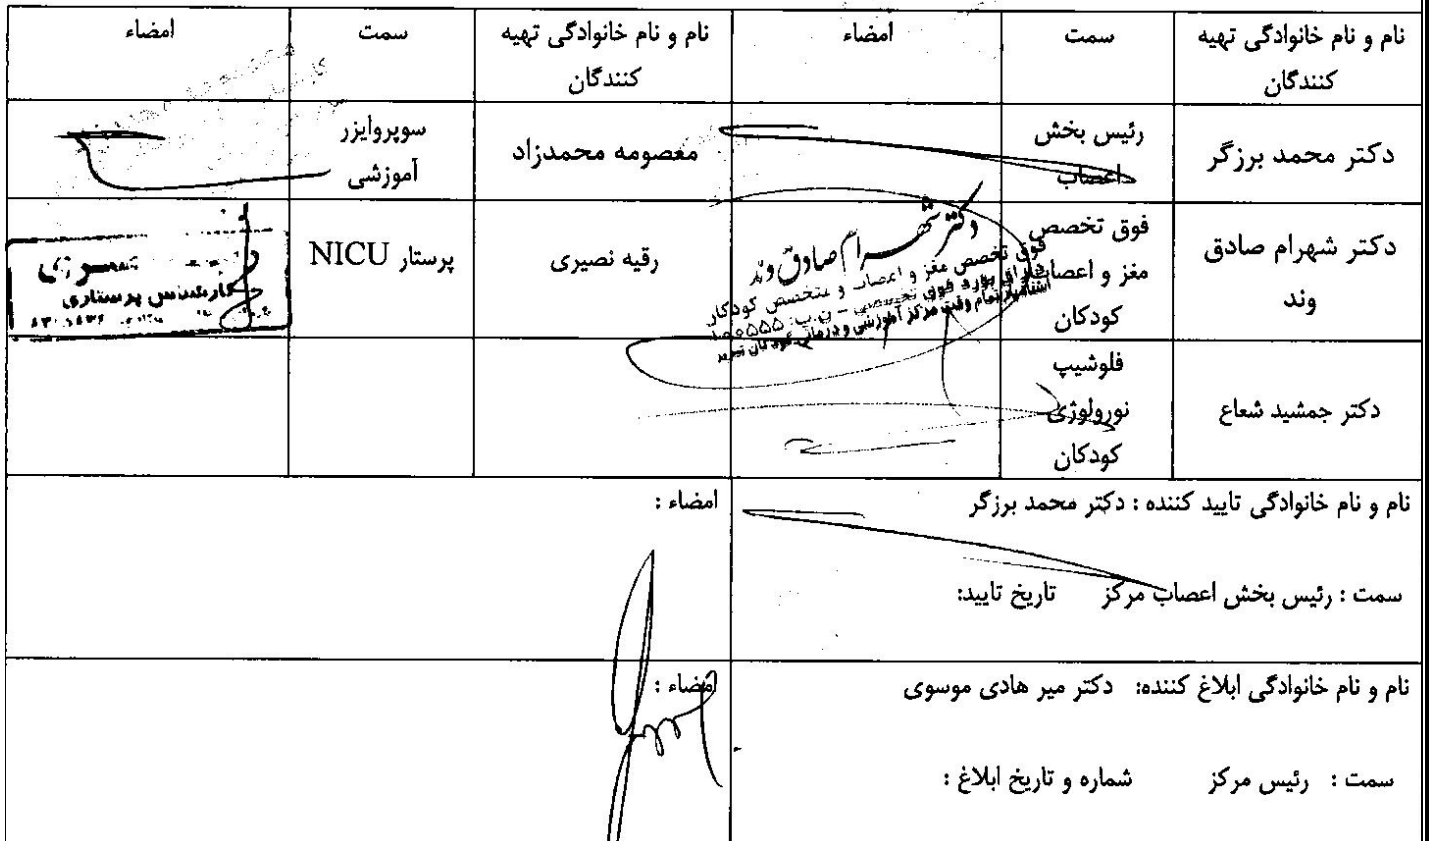 نام و نام خانوادگی تهیه کنندگان
سمت
امضاء
نام و نام خانوادگی تهیه کنندگان
سمت
امضاء
دکتر محمد برزگر
رئیس بخش
اعصاب
معصومه محمدزاد
سوپروایزر
آموزشی
دکتر شهرام صادق
وند
فوق تخصص
مغز و اعصاب
کودکان
دکتر شهرام صادق وند
فوق تخصص مغز و اعصاب و متخصص کودکان
رقیه نصیری
پرستار NICU
کارشناس پرستاری
دکتر جمشید شعاع
فلوشیپ
نورولوژی
کودکان
نام و نام خانوادگی تایید کننده : دکتر محمد برزگر
امضاء :
سمت : رئیس بخش اعصاب مرکز تاریخ تایید:
نام و نام خانوادگی ابلاغ کننده: دکتر میر هادی موسوی
امضاء :
سمت : رئیس مرکز شماره و تاریخ ابلاغ :